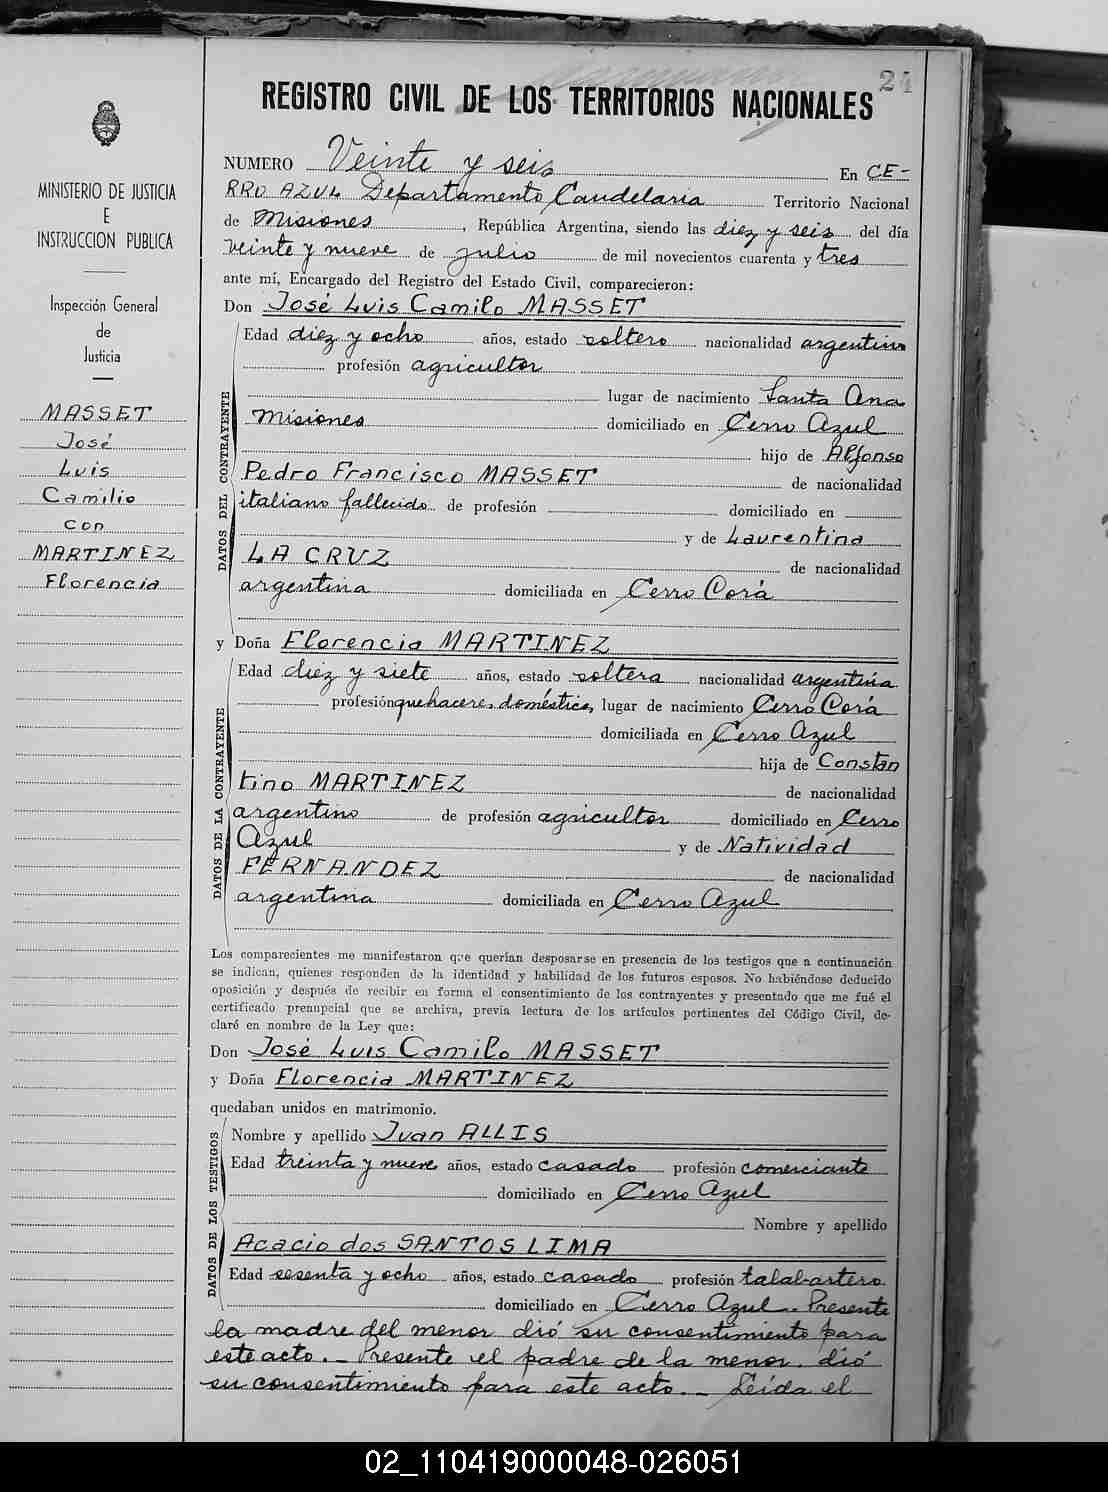 24
REGISTRO CIVIL DE LOS TERRITORIOS NACIONALES
MINISTERIO DE JUSTICIA
E
INSTRUCCION PUBLICA
Inspección General
de
Justicia
MASSET
José
Luis
Camilio
con
MARTINEZ
Florencia
NUMERO Veinte y seis En CE-
RRO AZUL Departamento Candelaria Territorio Nacional
de Misiones, República Argentina, siendo las diez y seis del día
veinte y nueve de julio de mil novecientos cuarenta y tres
ante mí, Encargado del Registro del Estado Civil, comparecieron:
Don José Luis Camilo MASSET
DATOS DEL CONTRAYENTE
Edad diez y ocho años, estado soltero nacionalidad argentino
profesión agricultor
lugar de nacimiento Santa Ana
Misiones domiciliado en Cerro Azul
hijo de Alfonso
Pedro Francisco MASSET de nacionalidad
italiano fallecido de profesión domiciliado en
y de Laurentina
LA CRUZ de nacionalidad
argentina domiciliada en Cerro Corá
y Doña Florencia MARTINEZ
DATOS DE LA CONTRAYENTE
Edad diez y siete años, estado soltera nacionalidad argentina
profesión quehaceres domésticos, lugar de nacimiento Cerro Corá
domiciliada en Cerro Azul
hija de Constan
tino MARTINEZ de nacionalidad
argentino de profesión agricultor domiciliado en Cerro
Azul y de Natividad
FERNANDEZ de nacionalidad
argentina domiciliada en Cerro Azul
Los comparecientes me manifestaron que querían desposarse en presencia de los testigos que a continuación
se indican, quienes responden de la identidad y habilidad de los futuros esposos. No habiéndose deducido
oposición y después de recibir en forma el consentimiento de los contrayentes y presentado que me fué el
certificado prenupcial que se archiva, previa lectura de los artículos pertinentes del Código Civil, de-
claré en nombre de la Ley que:
Don José Luis Camilo MASSET
y Doña Florencia MARTINEZ
quedaban unidos en matrimonio.
DATOS DE LOS TESTIGOS
Nombre y apellido Juan ALLIS
Edad treinta y nueve años, estado casado profesión comerciante
domiciliado en Cerro Azul
Nombre y apellido
Acacio dos SANTOS LIMA
Edad sesenta y ocho años, estado casado profesión talabartero
domiciliado en Cerro Azul. Presente
la madre del menor dió su consentimiento para
este acto. _ Presente el padre de la menor. dió
su consentimiento para este acto. _ Leída el
02_110419000048-026051